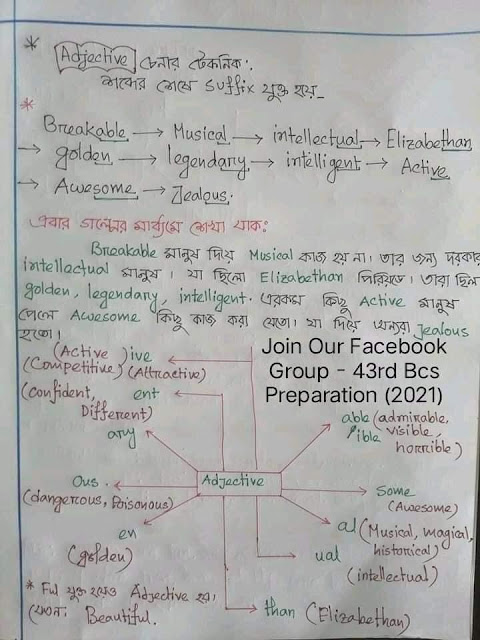 * Adjective চেনার টেকনিক:
শব্দের শেষে Suffix যুক্ত হয়_
*
Breakable → Musical → intellectual → Elizabethan
→ golden → legendary → intelligent → Active
→ Awesome → Jealous.
এবার গল্পের মাধ্যমে শেখা যাক:
Breakable মানুষ দিয়ে Musical কাজ হয় না। তার জন্য দরকার
intellectual মানুষ। যা ছিলো Elizabethan পিরিয়ডে। তারা ছিল
golden, legendary, intelligent. এরকম কিছু Active মানুষ
পেলে Awesome কিছু কাজ করা যেতো। যা দিয়ে অন্যরা Jealous
হতো।
Join Our Facebook
Group - 43rd Bcs
Preparation (2021)
(Active )ive
(Competitive) (Attractive)
(confident, ent
Different)
ary
Ous.
(dangerous, Poisonous)
en
(golden)
Adjective
able (admirable,
ible visible,
horrible)
Some
(Awesome)
al (Musical, magical,
historical)
ual
(intellectual)
than (Elizabethan)
* Ful যুক্ত হয়েও Adjective হয়,
যেমন: Beautiful.